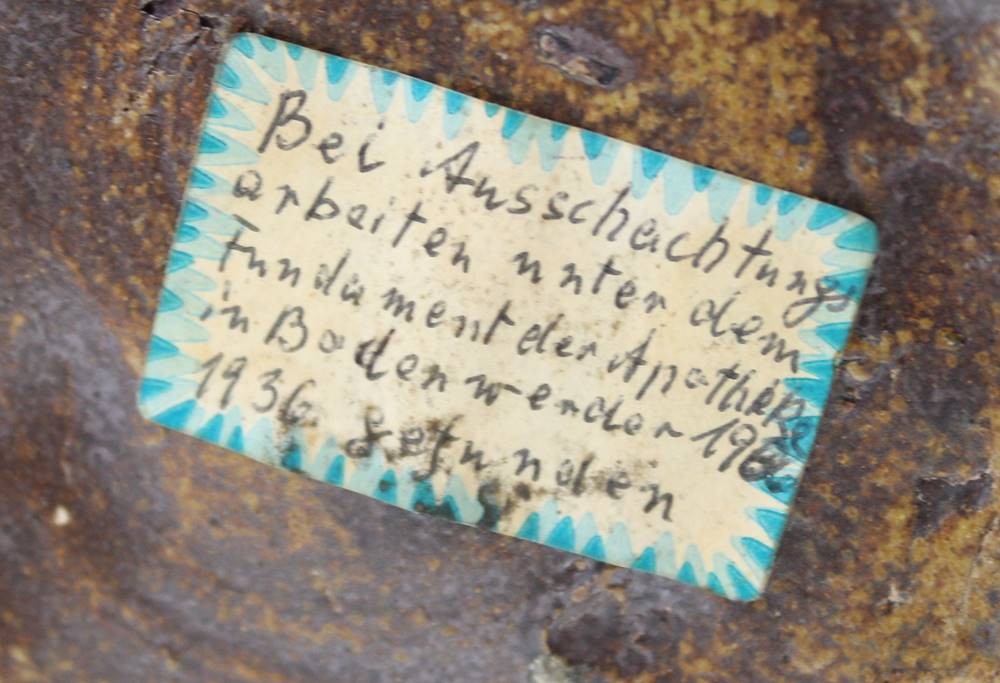 Bei Ausschachtungs
arbeiten unter dem
Fundament der Apotheke
in Bodenwerder
1936 gefunden